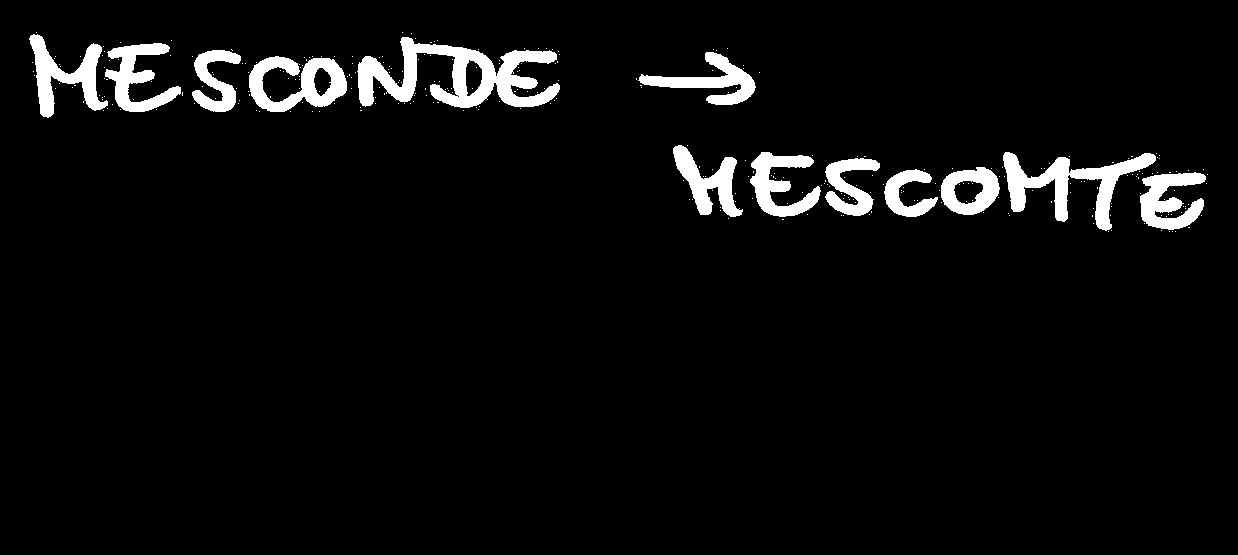 MESCONDE →
MESCOMTE